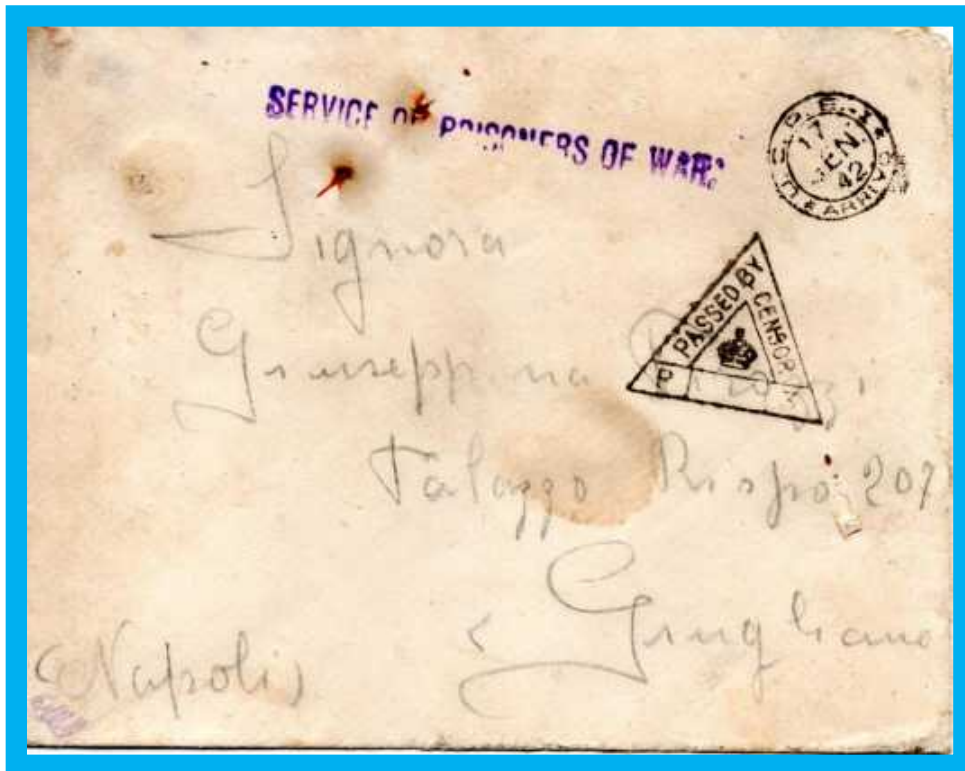 SERVICE OF PRISONERS OF WAR.
17
GEN.
42
ARRIVO
PASSED BY
CENSOR
P
Signora
Giuseppina
Palazzo Rispo 207
Giugliano
(Napoli)